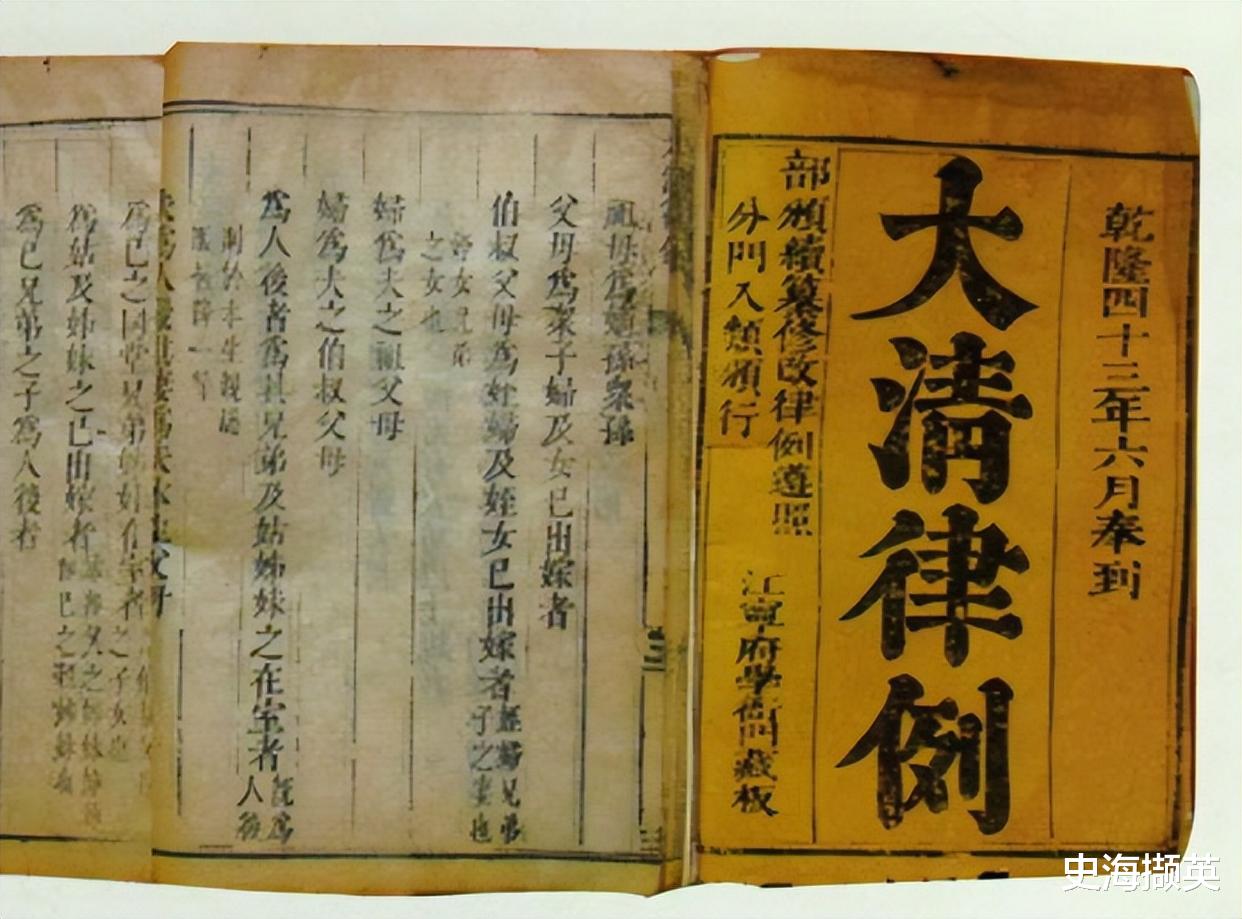 乾隆四十三年六月奉到
大清律例
部頒續纂修改律例遵照
分門入類頒行
江寧府學衙門藏板
祖母為嫡孫衆孫
父母為衆子婦及女已出嫁者
伯叔父母為姪婦及姪女已出嫁者
姪婦兄弟
子之妻也
姪女兄弟
之女也
婦為夫之祖父母
婦為夫之伯叔父母
為人後者為其兄弟及姑姊妹之在室者
既為
人後
則於本生親屬
服皆降一等
為己之同堂兄弟
在室者
為姑及姊妹之已出嫁者
為己兄弟之子為人後者
史海撷英